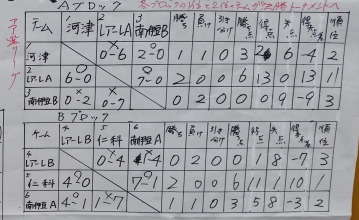 Aブロック
各ブロックの1位と2位が決勝トナメントへ
予選リーグ
チーム 1 河津 2 LアールA 3 南伊豆B 勝ち 負け 引き分け 勝点 得点 失点 得失点 順位
1 河津 × 0-6 ○ 2-0 1 1 0 3 2 6 -4 2
2 LアールA ○ 6-0 ○ 7-0 2 0 0 6 13 0 13 1
3 南伊豆B × 0-2 × 0-7 0 2 0 0 0 9 -9 3
Bブロック
チーム 4 LアールB 5 仁科 6 南伊豆A 勝ち 負け 引き分け 勝点 得点 失点 得失点 順位
4 LアールB × 0-4 × 1-4 0 2 0 0 1 8 -7 3
5 仁科 ○ 4-0 ○ 7-1 2 0 0 6 11 1 10 1
6 南伊豆A ○ 4-1 × 1-7 1 1 0 3 5 8 -3 2